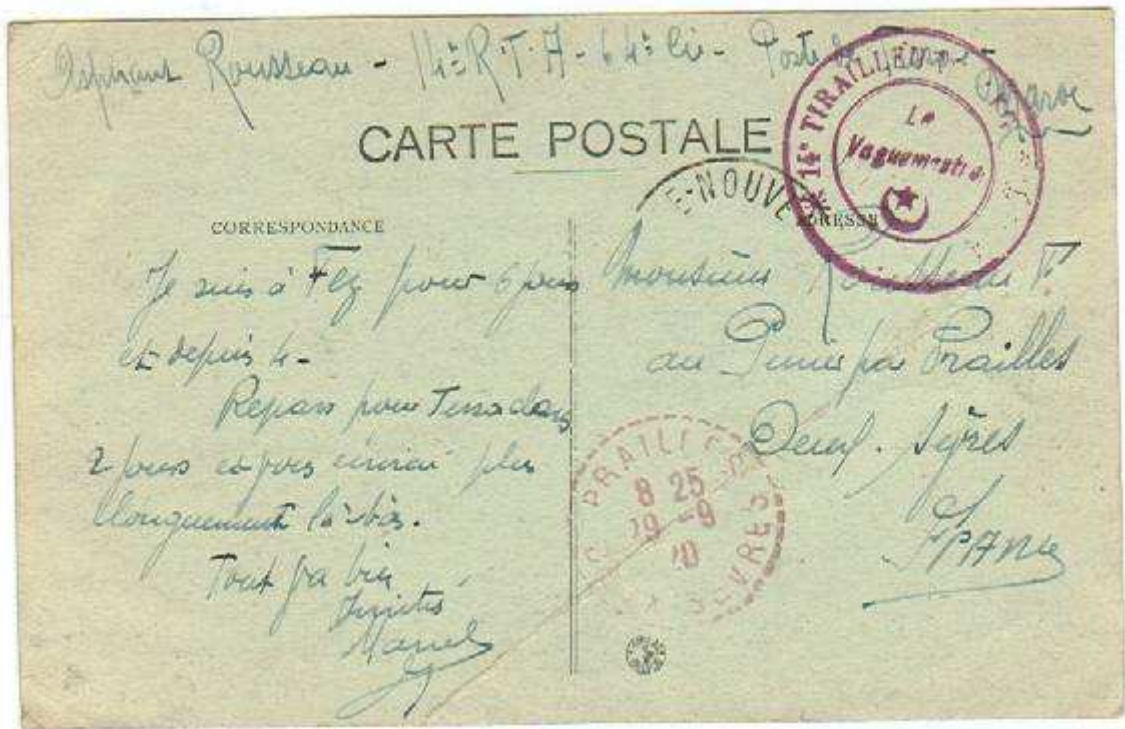 Aspirant Rousseau - 14e R.T.A - 6 4e Cie - Poste de
Maroc
CARTE POSTALE
14e TIRAILLEURS
Le
Vaguemestre
E-NOUVE
CORRESPONDANCE
ADRESSE
Je suis à Fez pour 6 jours
et depuis 4 -
Repars pour Tissa dans
2 jours et vous écrirai plus
longuement là-bas.
Tout va bien
Amitiés
Marcel
Monsieur Rousseau F.
au par Prailles
Deux-Sèvres
France
PRAILLES
8 25
19 -9
SEVRES